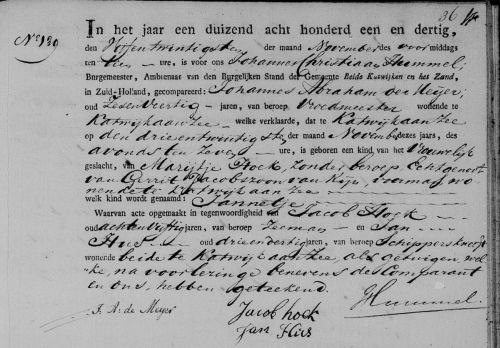 36
No 139
In het jaar een duizend acht honderd een en dertig,
den Vijfentwintigsten der maand November des voormiddags
ten ure, is voor ons Johannes Christiaan Hummel,
Burgemeester, Ambtenaar van den Burgelijken Stand der Gemeente Beide Katwijken en het Zand,
in Zuid-Holland, gecompareerd: Johannes Abraham de Meijer,
oud Zesen Veertig jaren, van beroep Vroedmeester wonende te
Katwijk aan Zee welke verklaarde, dat te Katwijk aan Zee
op den drieentwintigsten der maand November dezes jaars, des
avonds ten Zeven ure, is geboren een kind van het Vrouwelijk
geslacht, van Marijtje Hoek, zonder beroep, Echtgenoot
van Gerrit Jacobszoon van Rijn, wo-
nende te Katwijk aan Zee
welk kind word genaamd: Jannetje
Waarvan acte opgemaakt in tegenwoordigheid van Jacob Hoek
oud achtenvijftig jaren, van beroep Zeeman en Jan
Huis oud drieendertig jaren, van beroep Schippersknegt
wonende beide te Katwijk aan Zee, als getuigen, wel-
ke, na voorlezing benevens de Comparant
en ons, hebben geteekend.
J. A. de Meyer
Jacob hoek
Jan Huis
Hummel.